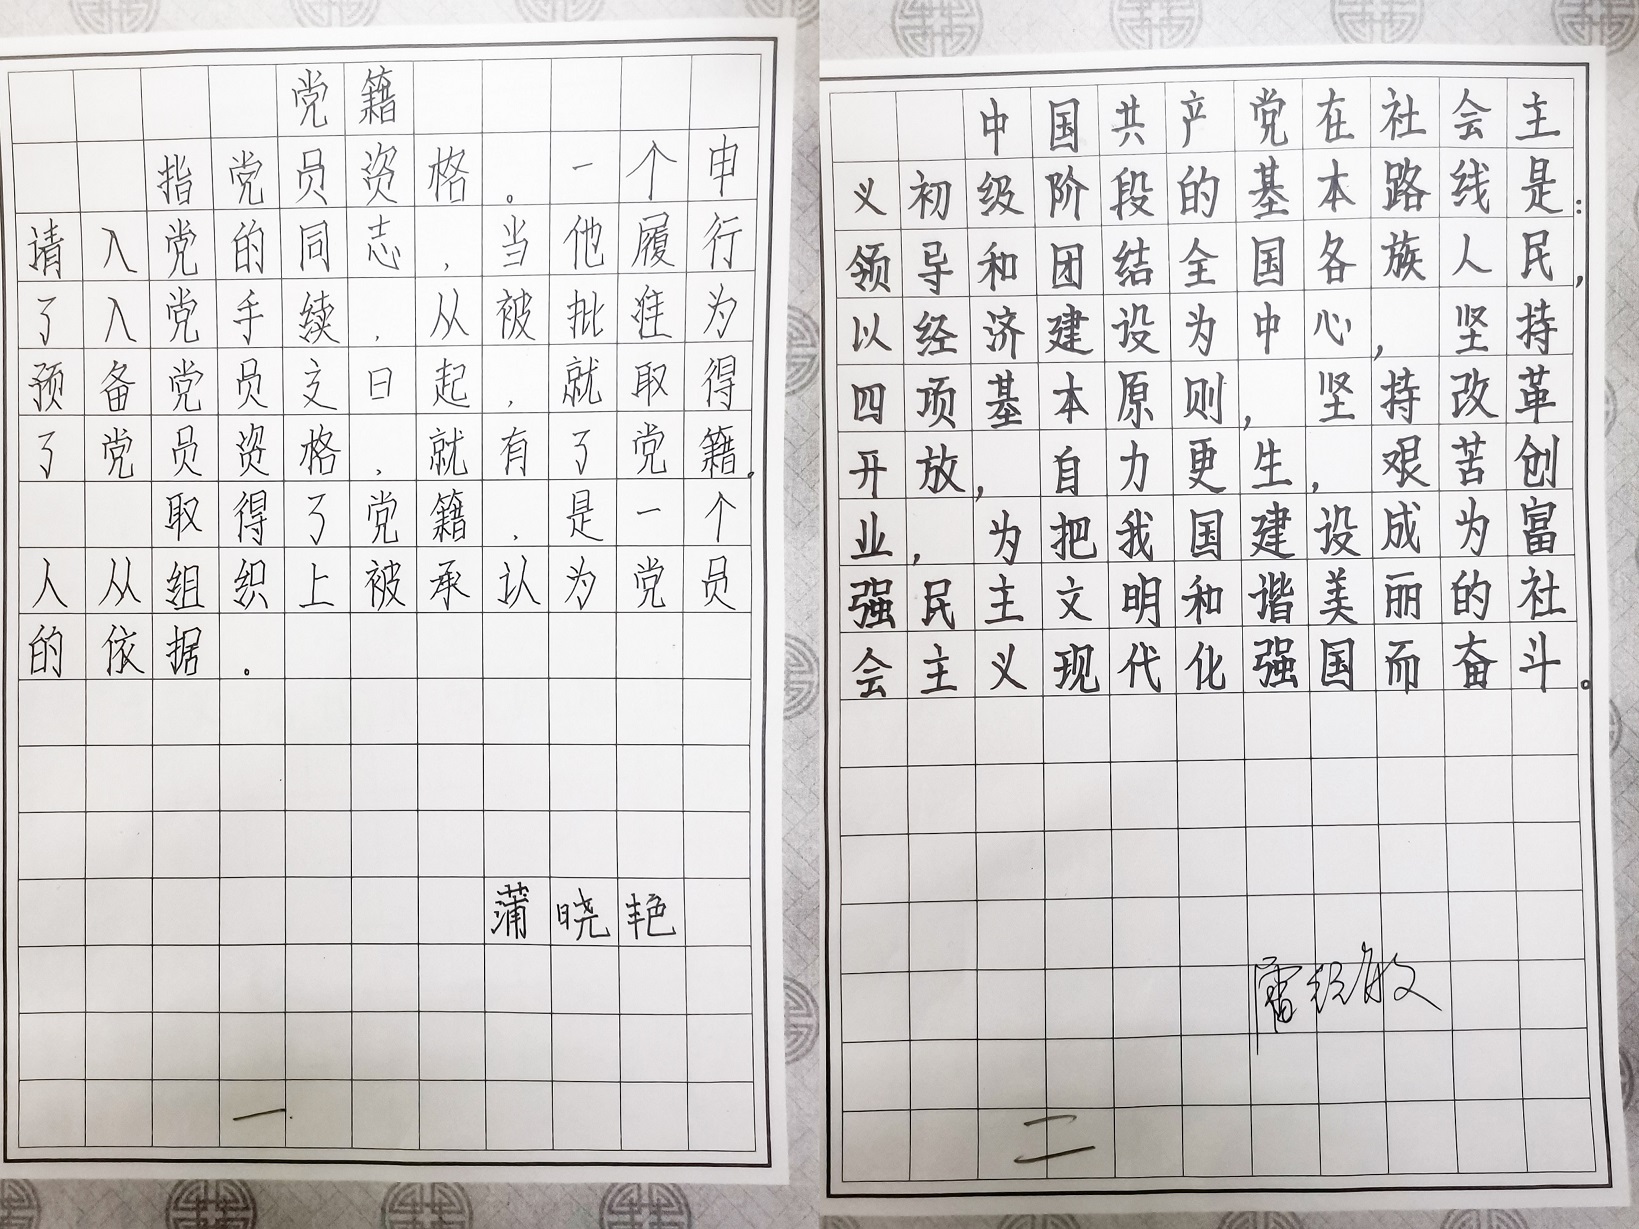 党籍
指党员资格。一个申
请入党的同志,当他履行
了入党手续,从被批准为
预备党员之日起,就取得
了党员资格,就有了党籍。
取得了党籍,是一个
人从组织上被承认为党员
的依据。
蒲晓艳
一
中国共产党在社会主
义初级阶段的基本路线是:
领导和团结全国各族人民,
以经济建设为中心,坚持
四项基本原则,坚持改革
开放,自力更生,艰苦创
业,为把我国建设成为富
强民主文明和谐美丽的社
会主义现代化强国而奋斗。
二